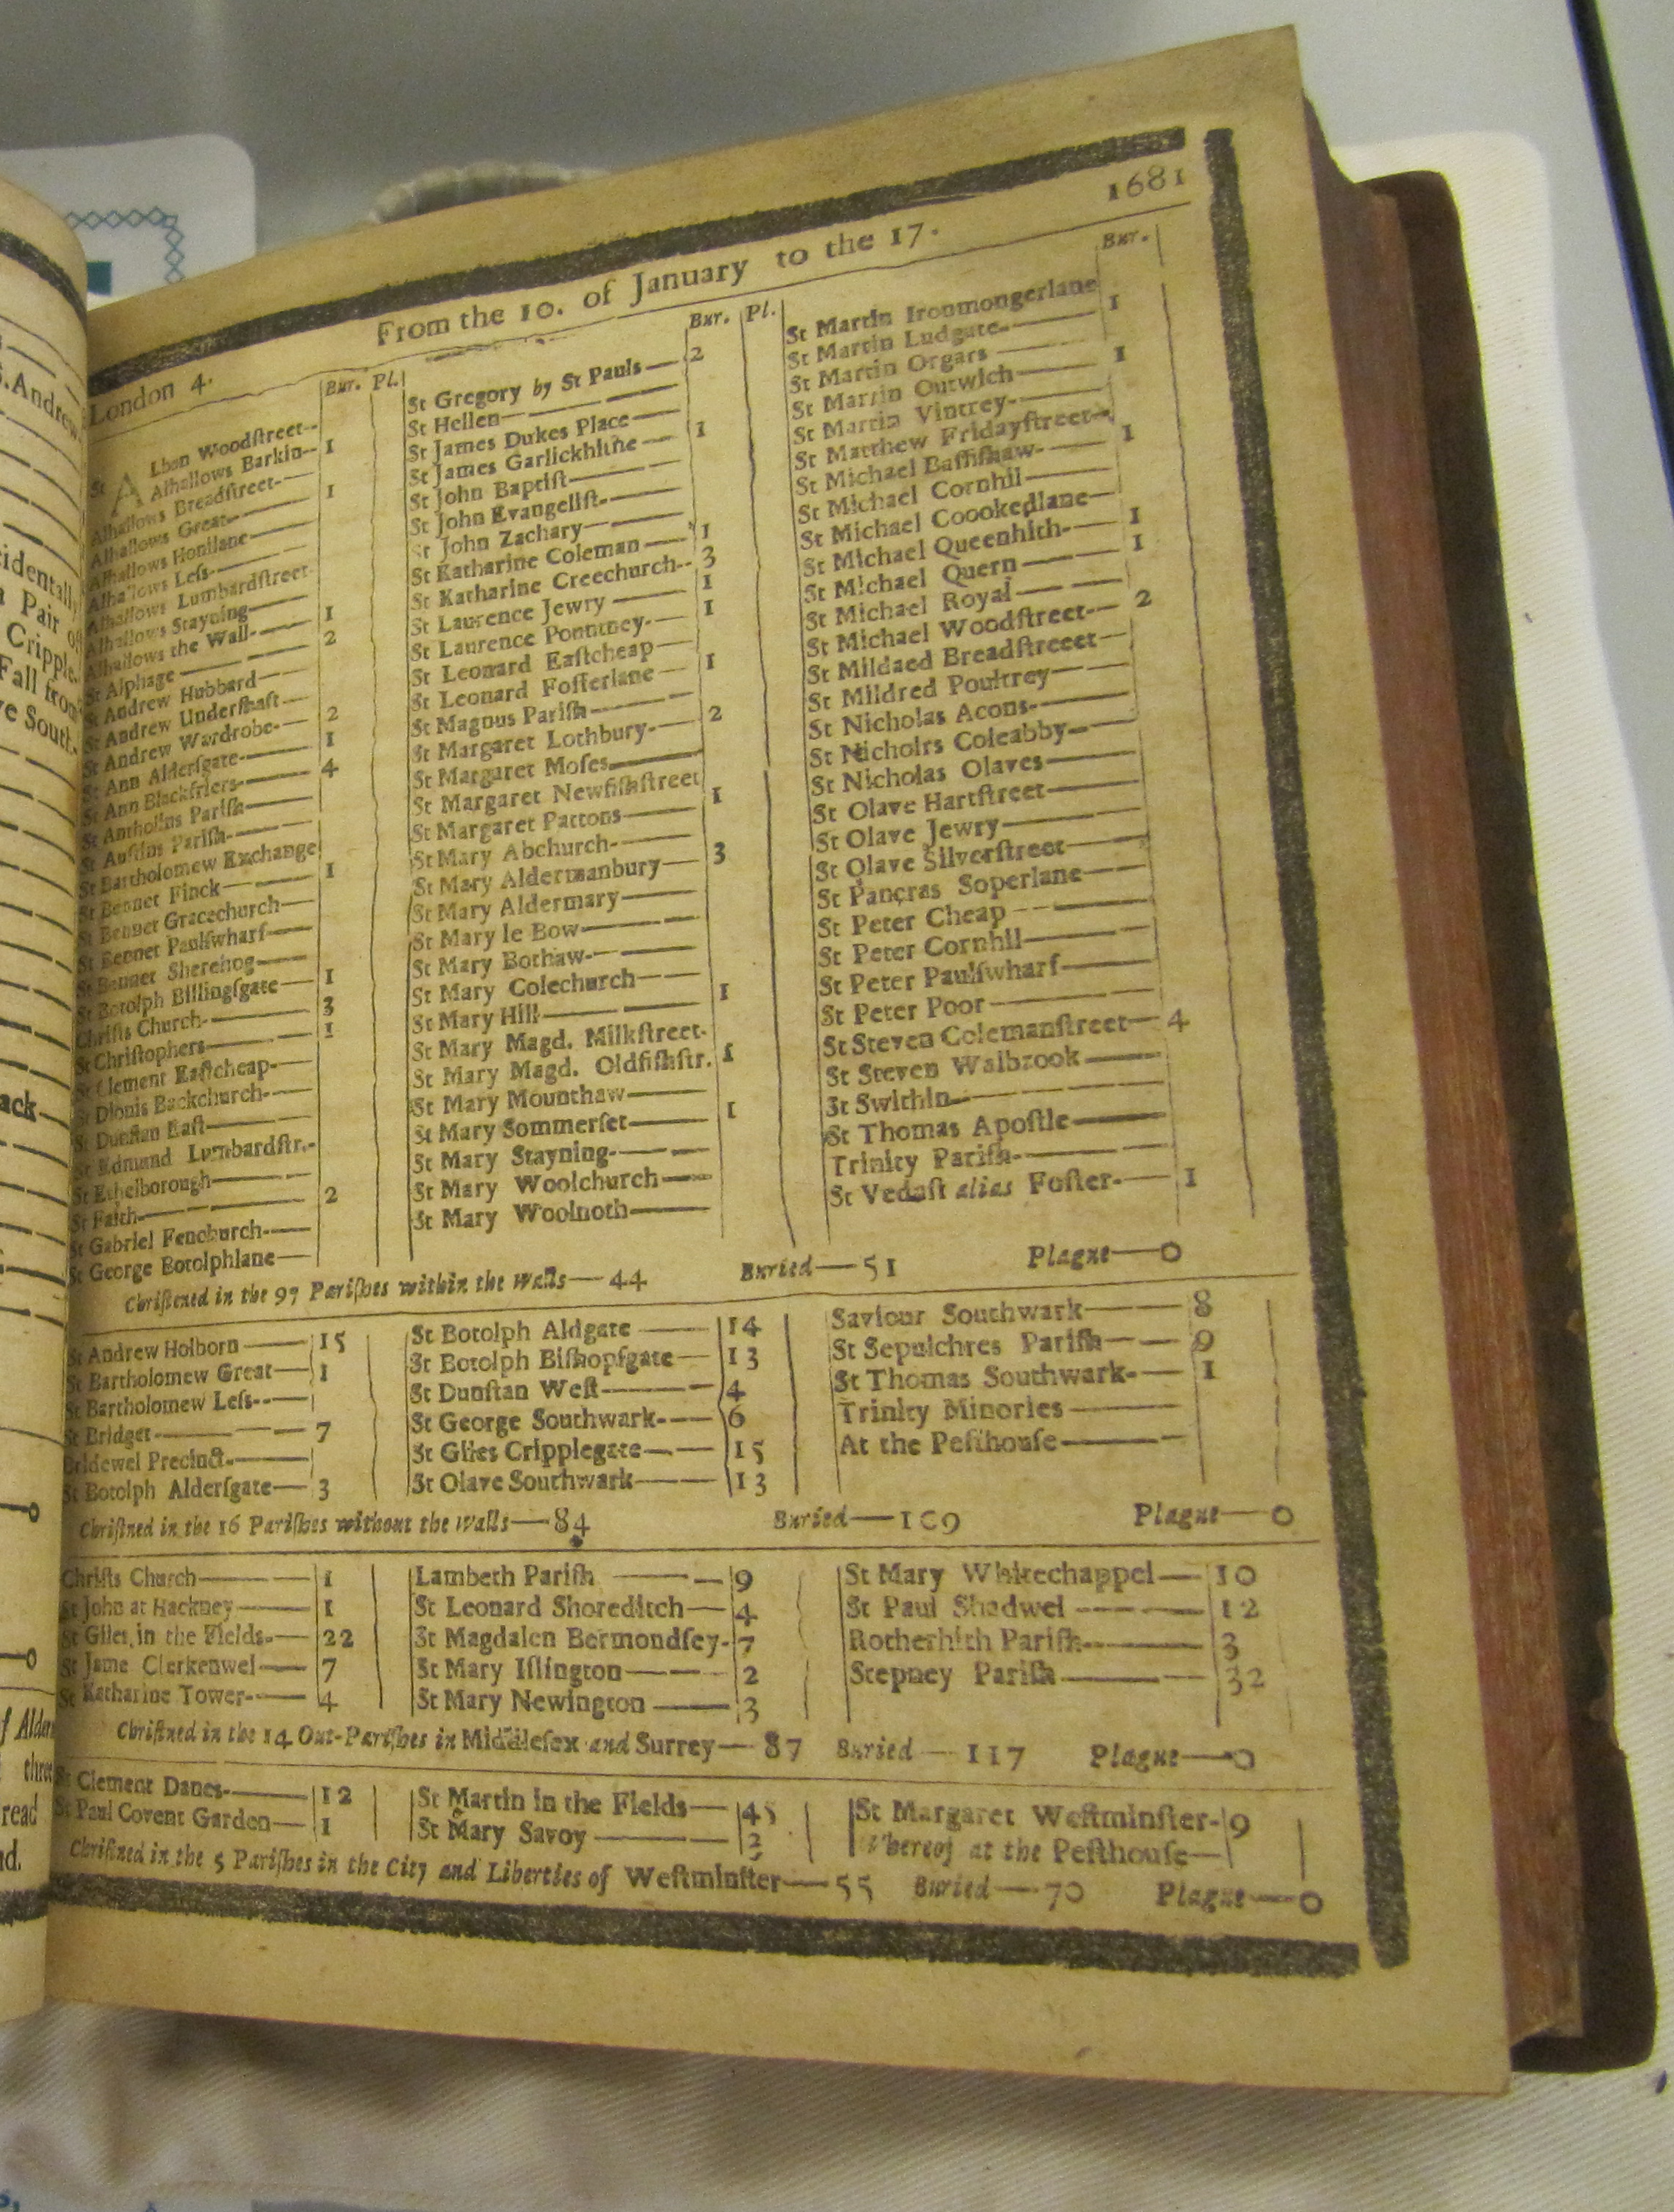 From the 10. of January to the 17. 1681
London 4.
Bur. Pl.
St ALban Woodſtreet
Alhallows Barkin 1
Alhallows Breadſtreet
Alhallows Great 1
Alhallows Honilane
Alhallows Leſs
Alhallows Lumbardſtreet
Alhallows Stayning
Alhallows the Wall 1
St Alphage 2
St Andrew Hubbard
St Andrew Underſhaft
St Andrew Wardrobe 2
St Ann Alderſgate 1
St Ann Blackfriers 4
St Antholins Pariſh
St Auſtins Pariſh
St Bartholomew Exchange
St Bennet Finck 1
St Bennet Gracechurch
St Bennet Paulſwharf
St Bennet Sherehog
St Botolph Billingſgate 1
Chriſts Church 3
St Chriſtophers 1
St Clement Eaſtcheap
St Dionis Backchurch
St Dunſtan Eaſt
St Edmund Lumbardſtr.
St Ethelborough
St Faith 2
St Gabriel Fenchurch
St George Botolphlane
Bur. Pl.
St Gregory by St Pauls 2
St Hellen
St James Dukes Place
St James Garlickhithe 1
St John Baptiſt
St John Evangeliſt
St John Zachary
St Katharine Coleman 1
St Katharine Creechurch 3
St Laurence Jewry 1
St Laurence Pountney 1
St Leonard Eaſtcheap
St Leonard Foſterlane 1
St Magnus Pariſh
St Margaret Lothbury 2
St Margaret Moſes
St Margaret Newfiſhſtreet
St Margaret Pattons 1
St Mary Abchurch
St Mary Aldermanbury 3
St Mary Aldermary
St Mary le Bow
St Mary Bothaw
St Mary Colechurch
St Mary Hill 1
St Mary Magd. Milkſtreet
St Mary Magd. Oldfiſhſtr. 1
St Mary Mounthaw
St Mary Sommerſet 1
St Mary Stayning
St Mary Woolchurch
St Mary Woolnoth
Bur.
St Martin Ironmongerlane
St Martin Ludgate 1
St Martin Orgars
St Martin Outwich 1
St Martin Vintrey
St Matthew Fridayſtreet
St Michael Baſſiſhaw 1
St Michael Cornhil
St Michael Coookedlane
St Michael Queenhith 1
St Michael Quern 1
St Michael Royal
St Michael Woodſtreet 2
St Mildaed Breadſtreeet
St Mildred Poultrey
St Nicholas Acons
St Nicholrs Coleabby
St Nicholas Olaves
St Olave Hartſtreet
St Olave Jewry
St Olave Silverſtreet
St Pancras Soperlane
St Peter Cheap
St Peter Cornhil
St Peter Paulſwharf
St Peter Poor
St Steven Colemanſtreet 4
St Steven Walbrook
St Swithin
St Thomas Apoſtle
Trinity Pariſh
St Vedaſt alias Foſter 1
Chriſtened in the 97 Pariſhes within the Walls—44 Buried—51 Plague—0
St Andrew Holborn 15
St Bartholomew Great 1
St Bartholomew Leſs
St Bridget 7
Bridewel Precinct
St Botolph Alderſgate 3
St Botolph Aldgate 14
St Botolph Biſhopſgate 13
St Dunſtan Weſt 4
St George Southwark 6
St Giles Cripplegate 15
St Olave Southwark 13
Saviour Southwark 8
St Sepulchres Pariſh 9
St Thomas Southwark 1
Trinity Minories
At the Peſthouſe
Chriſtned in the 16 Pariſhes without the Walls—84 Buried—109 Plague—0
Chriſts Church 1
St John at Hackney 1
St Giles in the Fields 22
St Jame Clerkenwel 7
St Katharine Tower 4
Lambeth Pariſh 9
St Leonard Shoreditch 4
St Magdalen Bermondſey 7
St Mary Iſlington 2
St Mary Newington 3
St Mary Whitechappel 10
St Paul Shadwel 12
Rotherhith Pariſh 3
Stepney Pariſh 32
Chriſtned in the 14 Out-Pariſhes in Middleſex and Surrey—87 Buried—117 Plague—0
St Clement Danes 12
St Paul Covent Garden 1
St Martin in the Fields 45
St Mary Savoy 3
St Margaret Weſtminſter 9
Whereof at the Peſthouſe
Chriſtned in the 5 Pariſhes in the City and Liberties of Weſtminſter—55 Buried—70 Plague—0